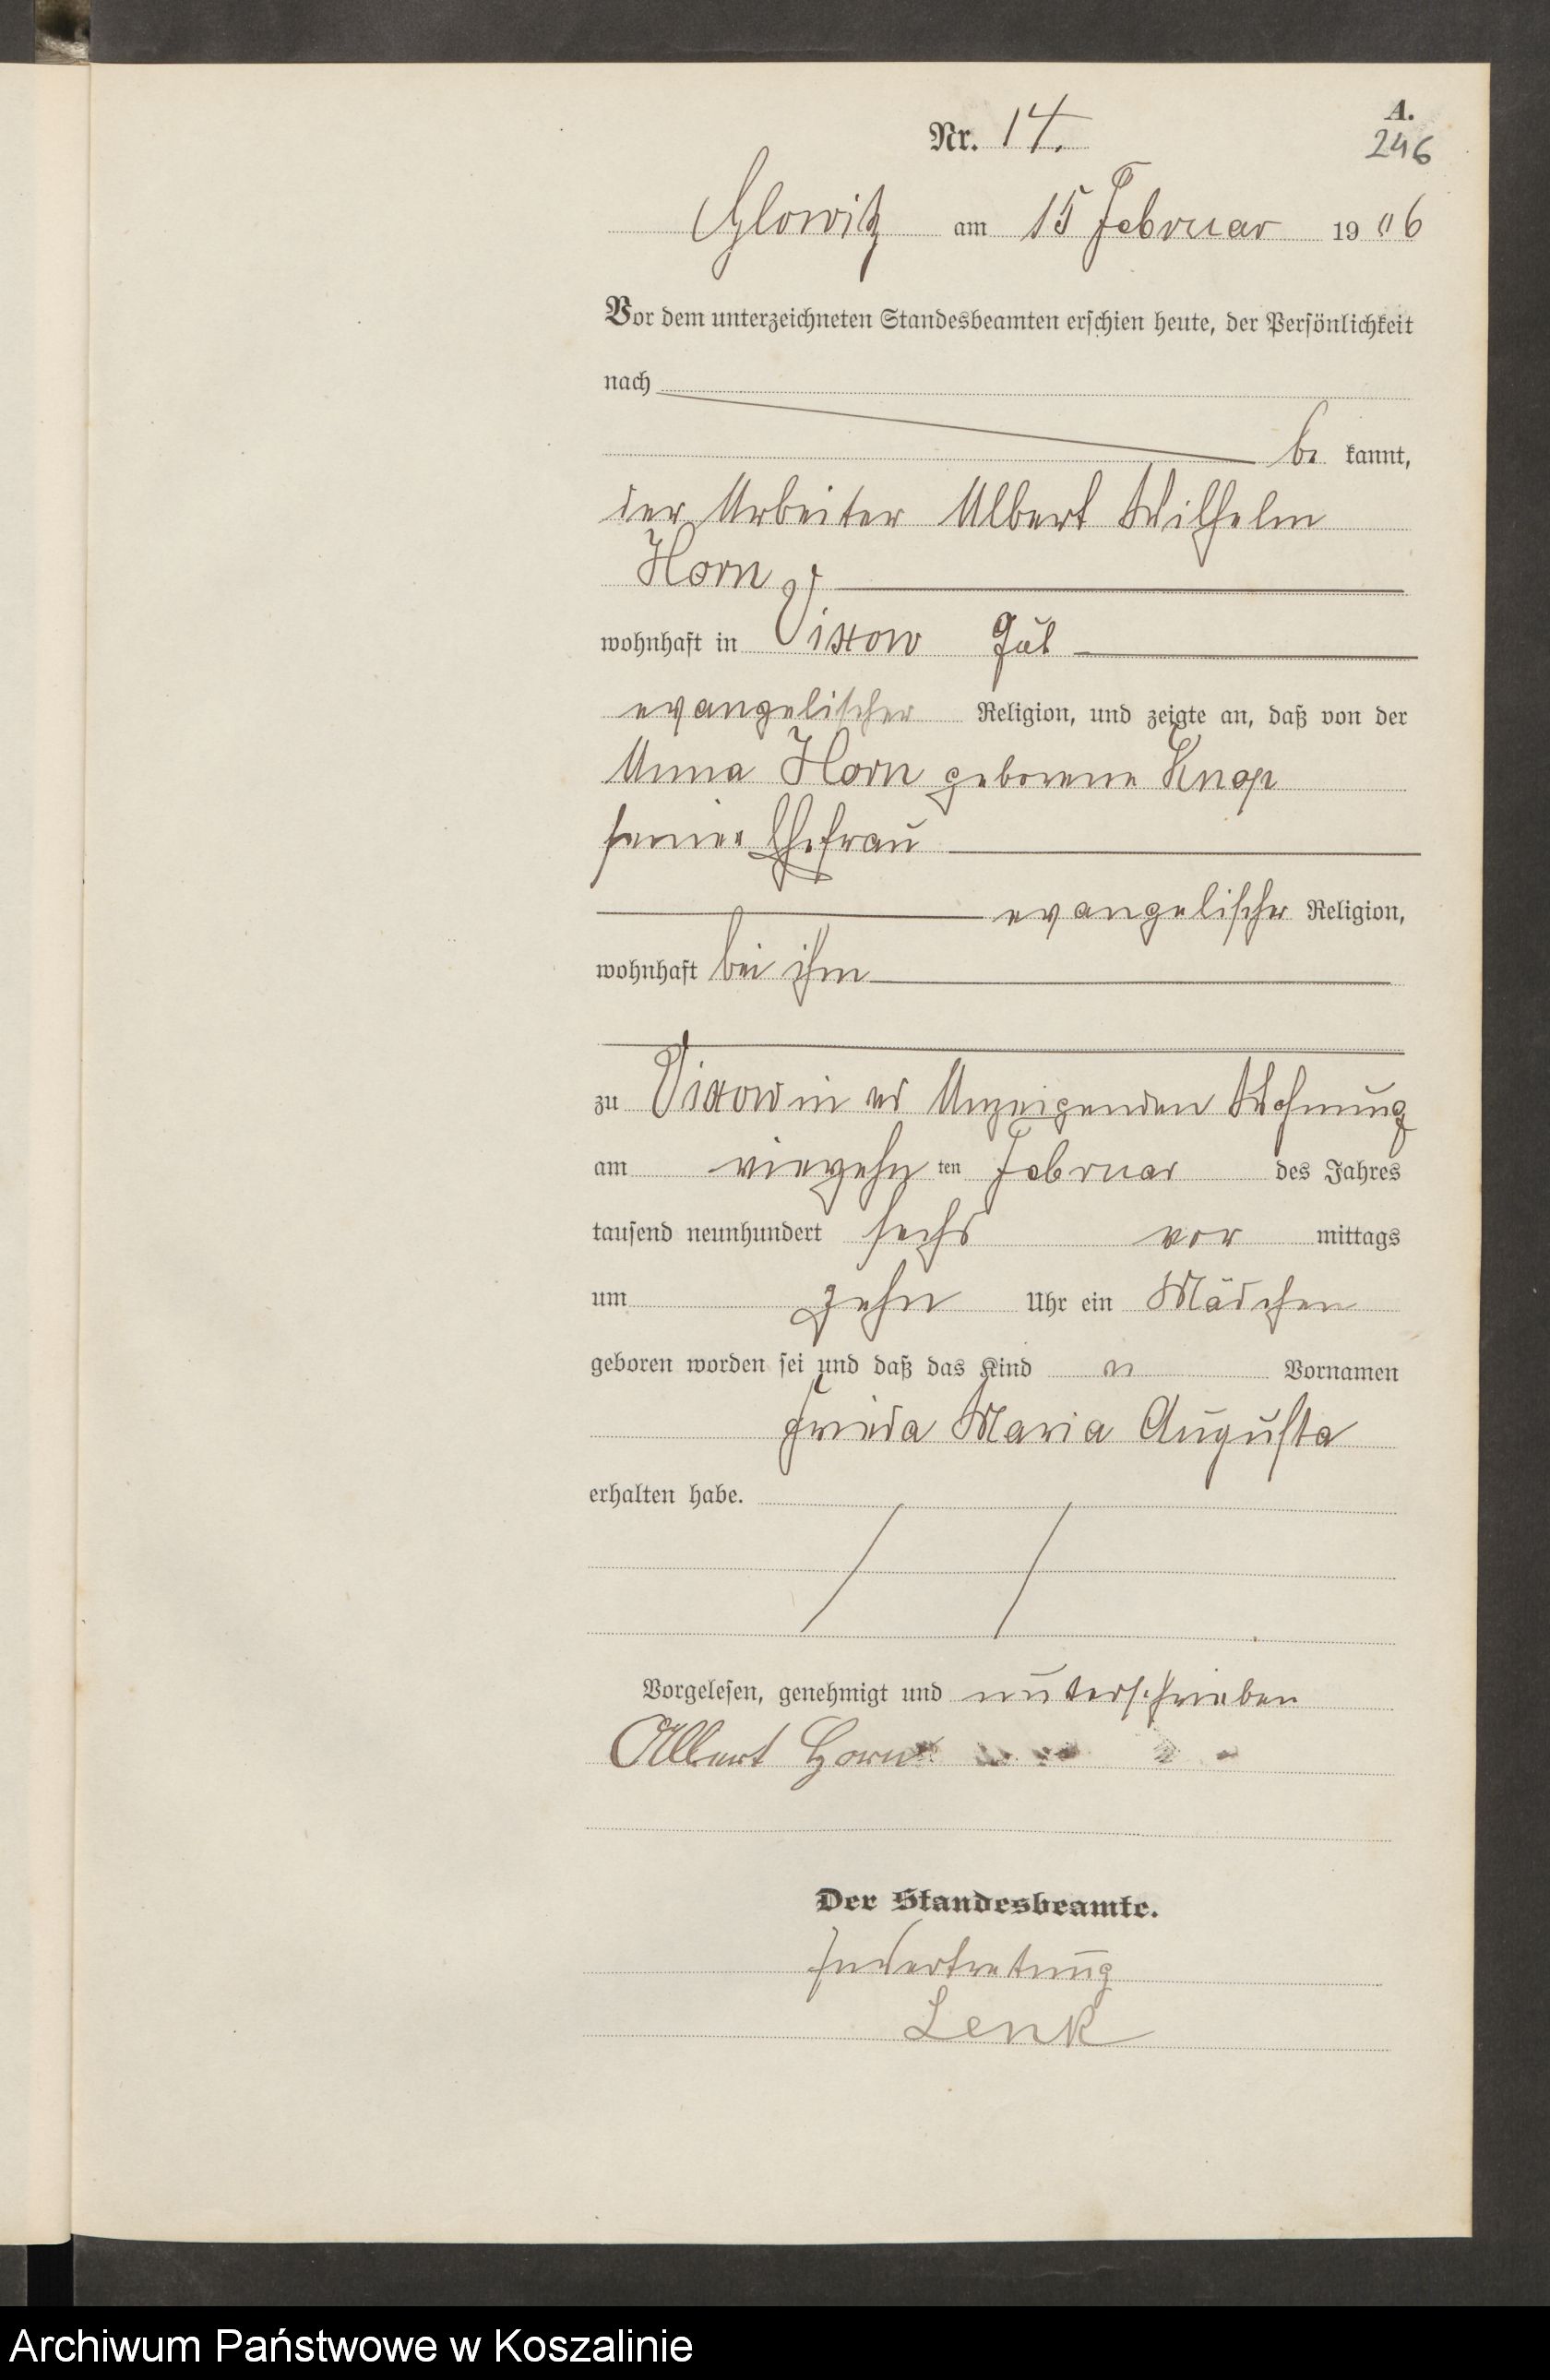 A.
Nr. 14.
246
Glowitz am 15 Februar 1906
Vor dem unterzeichneten Standesbeamten erschien heute, der Persönlichkeit
nach
be kannt,
der Arbeiter Albert Wilhelm
Horn
wohnhaft in Vixow Gut
evangelischer Religion, und zeigte an, daß von der
Anna Horn geborene Knop
seiner Ehefrau
evangelischer Religion,
wohnhaft bei ihm
zu Vixow in des Anzeigenden Wohnung
am vierzehn ten Februar des Jahres
tausend neunhundert sechs vor mittags
um zehn Uhr ein Mädchen
geboren worden sei und daß das Kind Vornamen
Frieda Maria Augusta
erhalten habe.
Vorgelesen, genehmigt und unterschrieben
Albert Horn
Der Standesbeamte.
In Vertretung
Lenk
Archiwum Państwowe w Koszalinie